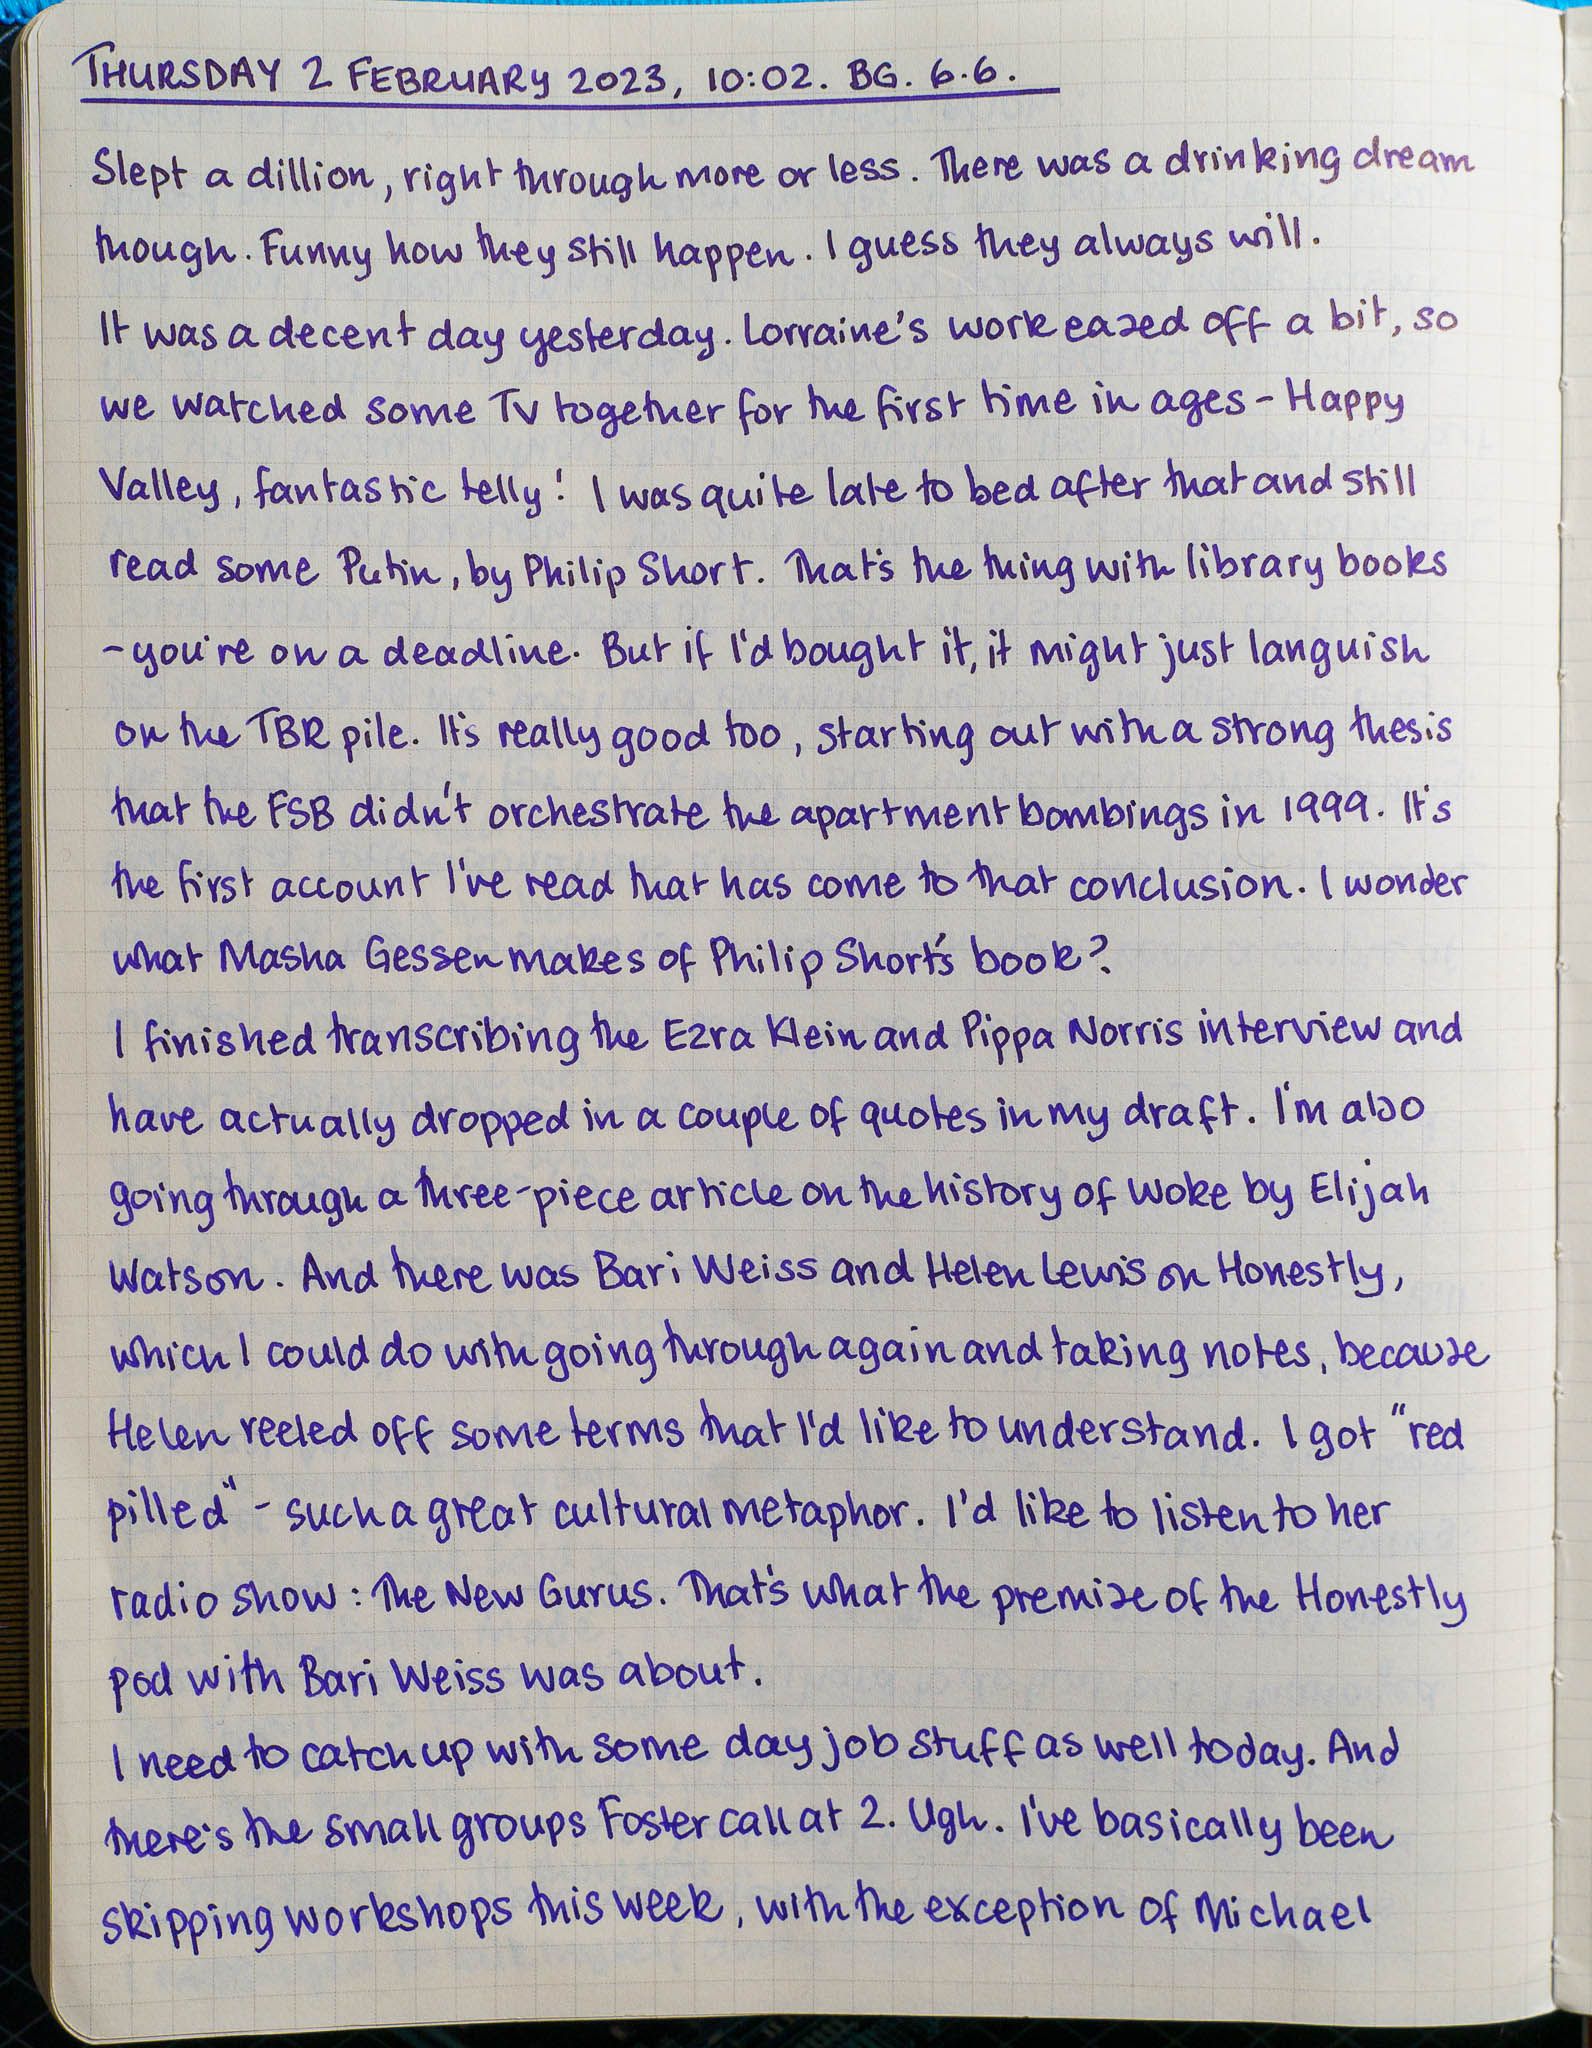 THURSDAY 2 FEBRUARY 2023, 10:02. BG. 6.6.
Slept a dillion, right through more or less. There was a drinking dream
though. Funny how they still happen. I guess they always will.
It was a decent day yesterday. Lorraine's work eased off a bit, so
we watched some TV together for the first time in ages - Happy
Valley, fantastic telly! I was quite late to bed after that and still
read some Putin, by Philip Short. That's the thing with library books
- you're on a deadline. But if I'd bought it, it might just languish
on the TBR pile. It's really good too, starting out with a strong thesis
that the FSB didn't orchestrate the apartment bombings in 1999. It's
the first account I've read that has come to that conclusion. I wonder
what Masha Gessen makes of Philip Short's book?
I finished transcribing the Ezra Klein and Pippa Norris interview and
have actually dropped in a couple of quotes in my draft. I'm also
going through a three-piece article on the history of woke by Elijah
Watson. And there was Bari Weiss and Helen Lewis on Honestly,
which I could do with going through again and taking notes, because
Helen reeled off some terms that I'd like to understand. I got "red
pilled" - such a great cultural metaphor. I'd like to listen to her
radio show: The New Gurus. That's what the premise of the Honestly
pod with Bari Weiss was about.
I need to catch up with some day job stuff as well today. And
there's the small groups Foster call at 2. Ugh. I've basically been
skipping workshops this week, with the exception of Michael